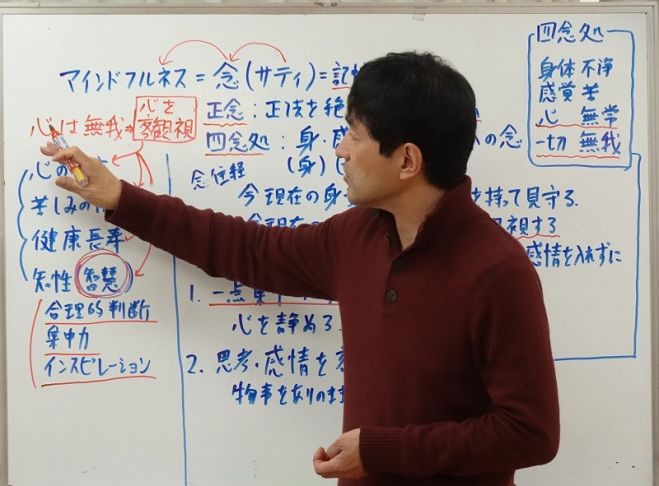 マインドフルネス = 念 (サティ) = 記
正念 : 正法を絶
心は無我
心を
客観視
四念処 : 身・感
の念
念住経
(身)
心の
今現在の身
持って見守る.
苦しみの
視する
健康長寿
感情を入れずに
知性 智慧
1. 一点集中
合理的判断
心を静める.
集中力
2. 思考・感情を
インスピレーション
物事をありのまま
四念処
身体 不浄
感覚 苦
心 無常
一切 無我